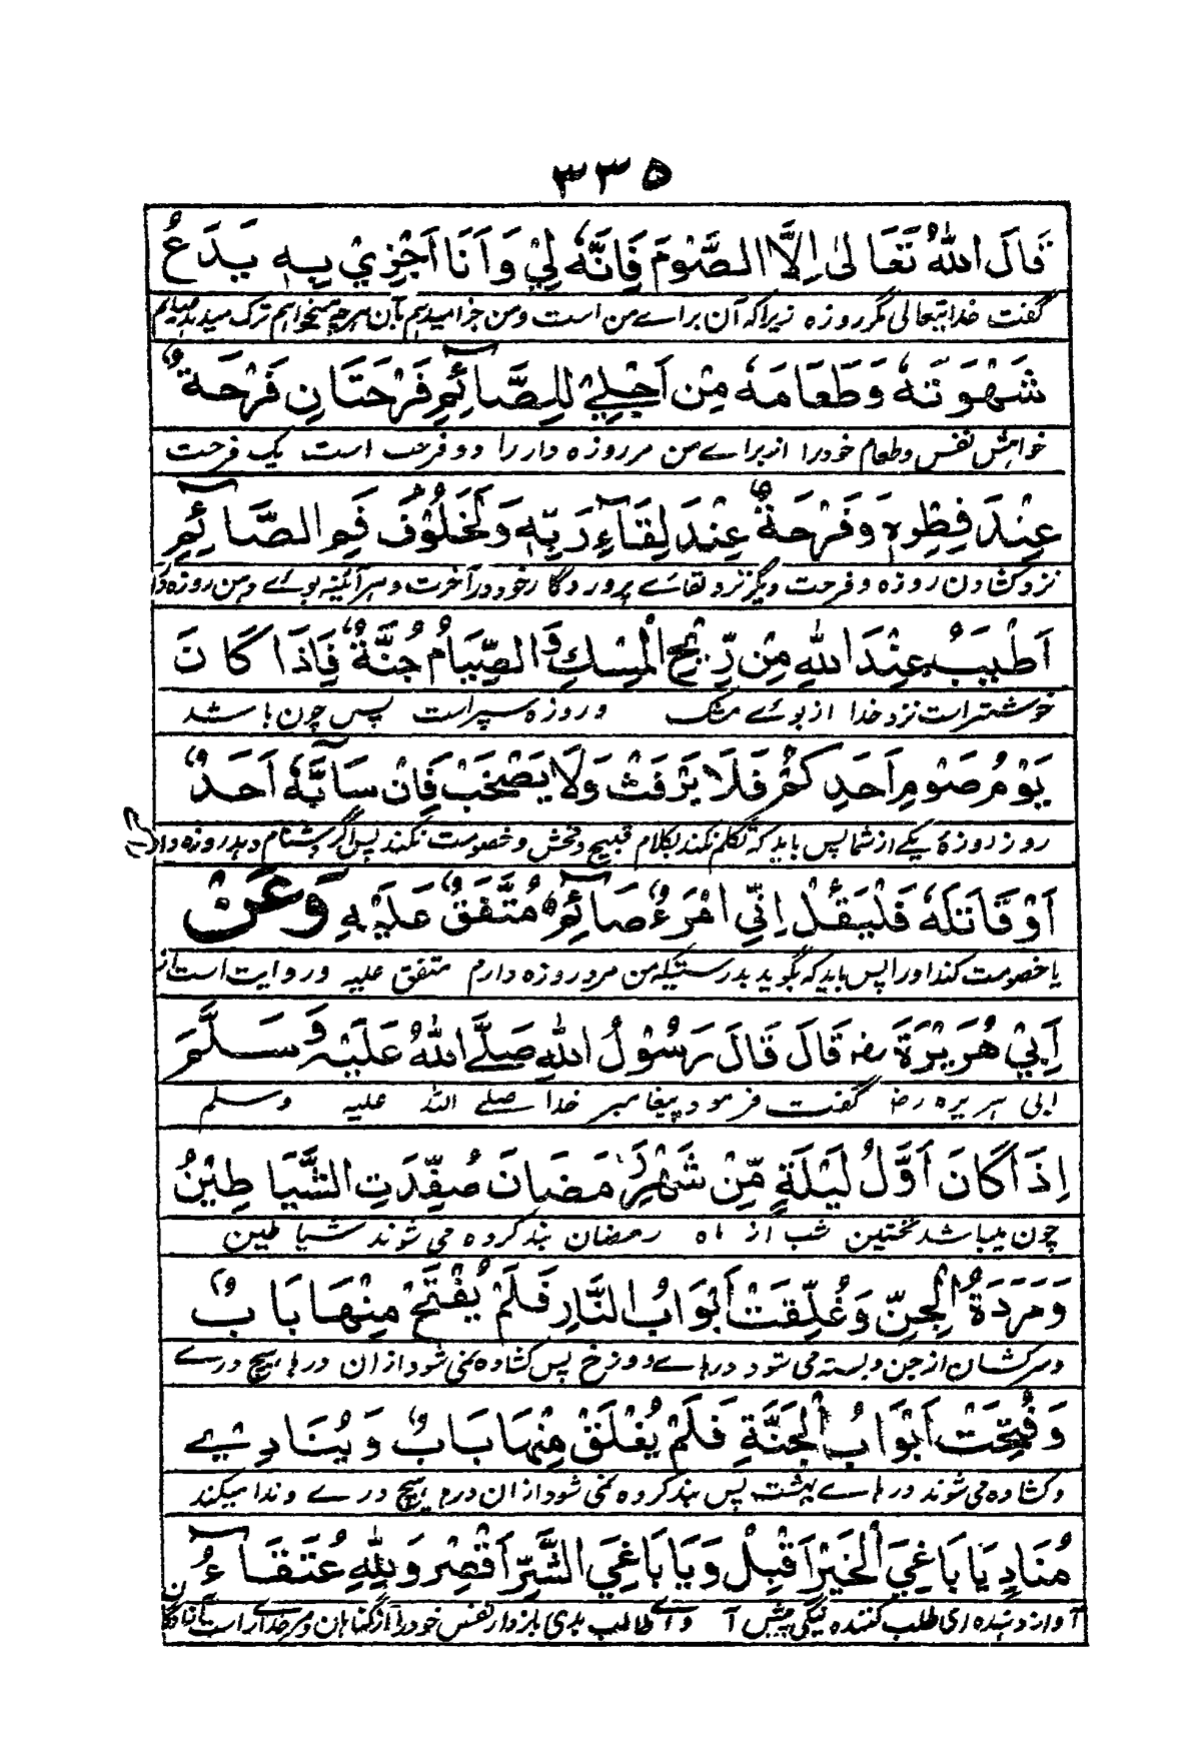 ۳۳۵
قَالَ اللهُ تَعَالٰى اِلَّا الصَّوْمَ فَاِنَّهٗ لِيْ وَاَنَا اَجْزِيْ بِهٖ يَدَعُ
گفت خدایتعالی مگر روزه زیراکه آن براے من است ومن جزا میدهم بآن هرچه میخواهم ترک میدهد صایم
شَهْوَتَهٗ وَطَعَامَهٗ مِنْ اَجْلِيْ لِلصَّآئِمِ فَرْحَتَانِ فَرْحَةٌ
خواهش نفس وطعام خودرا ازبراے من مر روزه دار را دو فرحت است یک فرحت
عِنْدَ فِطْرِهٖ وَفَرْحَةٌ عِنْدَ لِقَآءِ رَبِّهٖ وَلَخَلُوْفُ فَمِ الصَّآئِمِ
نزد کشادن روزه و فرحت دیگر نزد لقاے پروردگار خود درآخرت وهرآئینه بوئے دهن روزه دا
اَطْيَبُ عِنْدَ اللهِ مِنْ رِّيْحِ الْمِسْكِ وَالصِّيَامُ جُنَّةٌ فَاِذَا كَانَ
خوشتر است نزد خدا از بوئے مشک وروزه سپر است پس چون باشد
يَوْمُ صَوْمِ اَحَدِكُمْ فَلَا يَرْفَثْ وَلَا يَصْخَبْ فَاِنْ سَآبَّهٗ اَحَدٌ
روز روزهٔ یکے از شما پس باید که تکلم نکند بکلام قبیح وفحش وخصومت نکند پس اگر دشنام دهد روزه دار
اَوْقَاتَلَهٗ فَلْيَقُلْ اِنِّي امْرَءٌ صَآئِمٌ مُتَّفَقٌ عَلَيْهِ وَعَنْ
یا خصومت کند اورا پس باید که بگوید بدرستیکه من مرد روزه دارم متفق علیه وروایت است از
اَبِيْ هُرَيْرَةَ رض قَالَ قَالَ رَسُوْلُ اللهِ صَلَّى اللهُ عَلَيْهِ وَسَلَّمَ
ابی هریره رض گفت فرمود پیغامبر خدا صلے الله علیه وسلم
اِذَا كَانَ اَوَّلُ لَيْلَةٍ مِّنْ شَهْرِ رَمَضَانَ صُفِّدَتِ الشَّيَاطِيْنُ
چون میباشد نخستین شب از ماه رمضان بند کرده می شوند شیاطین
وَمَرَدَةُ الْجِنِّ وَغُلِّقَتْ اَبْوَابُ النَّارِ فَلَمْ يُفْتَحْ مِنْهَا بَابٌ
وسرکشان ازجن وبسته می شود درهاے دوزخ پس کشاده نمی شود ازان درها هیچ درے
وَفُتِّحَتْ اَبْوَابُ الْجَنَّةِ فَلَمْ يُغْلَقْ مِنْهَا بَابٌ وَيُنَادِيْ
وکشاده می شوند درهاے بهشت پس بند کرده نمی شود ازان درها هیچ درے وندا میکند
مُنَادٍ يَا بَاغِيَ الْخَيْرِ اَقْبِلْ وَيَا بَاغِيَ الشَّرِّ اَقْصِرْ وَلِلّٰهِ عُتَقَآءُ
آواز دهنده ای طلب کننده نیکی پیش آ واے طالب بدی بازدار نفس خودرا ازگناهان ومرخدایرا است